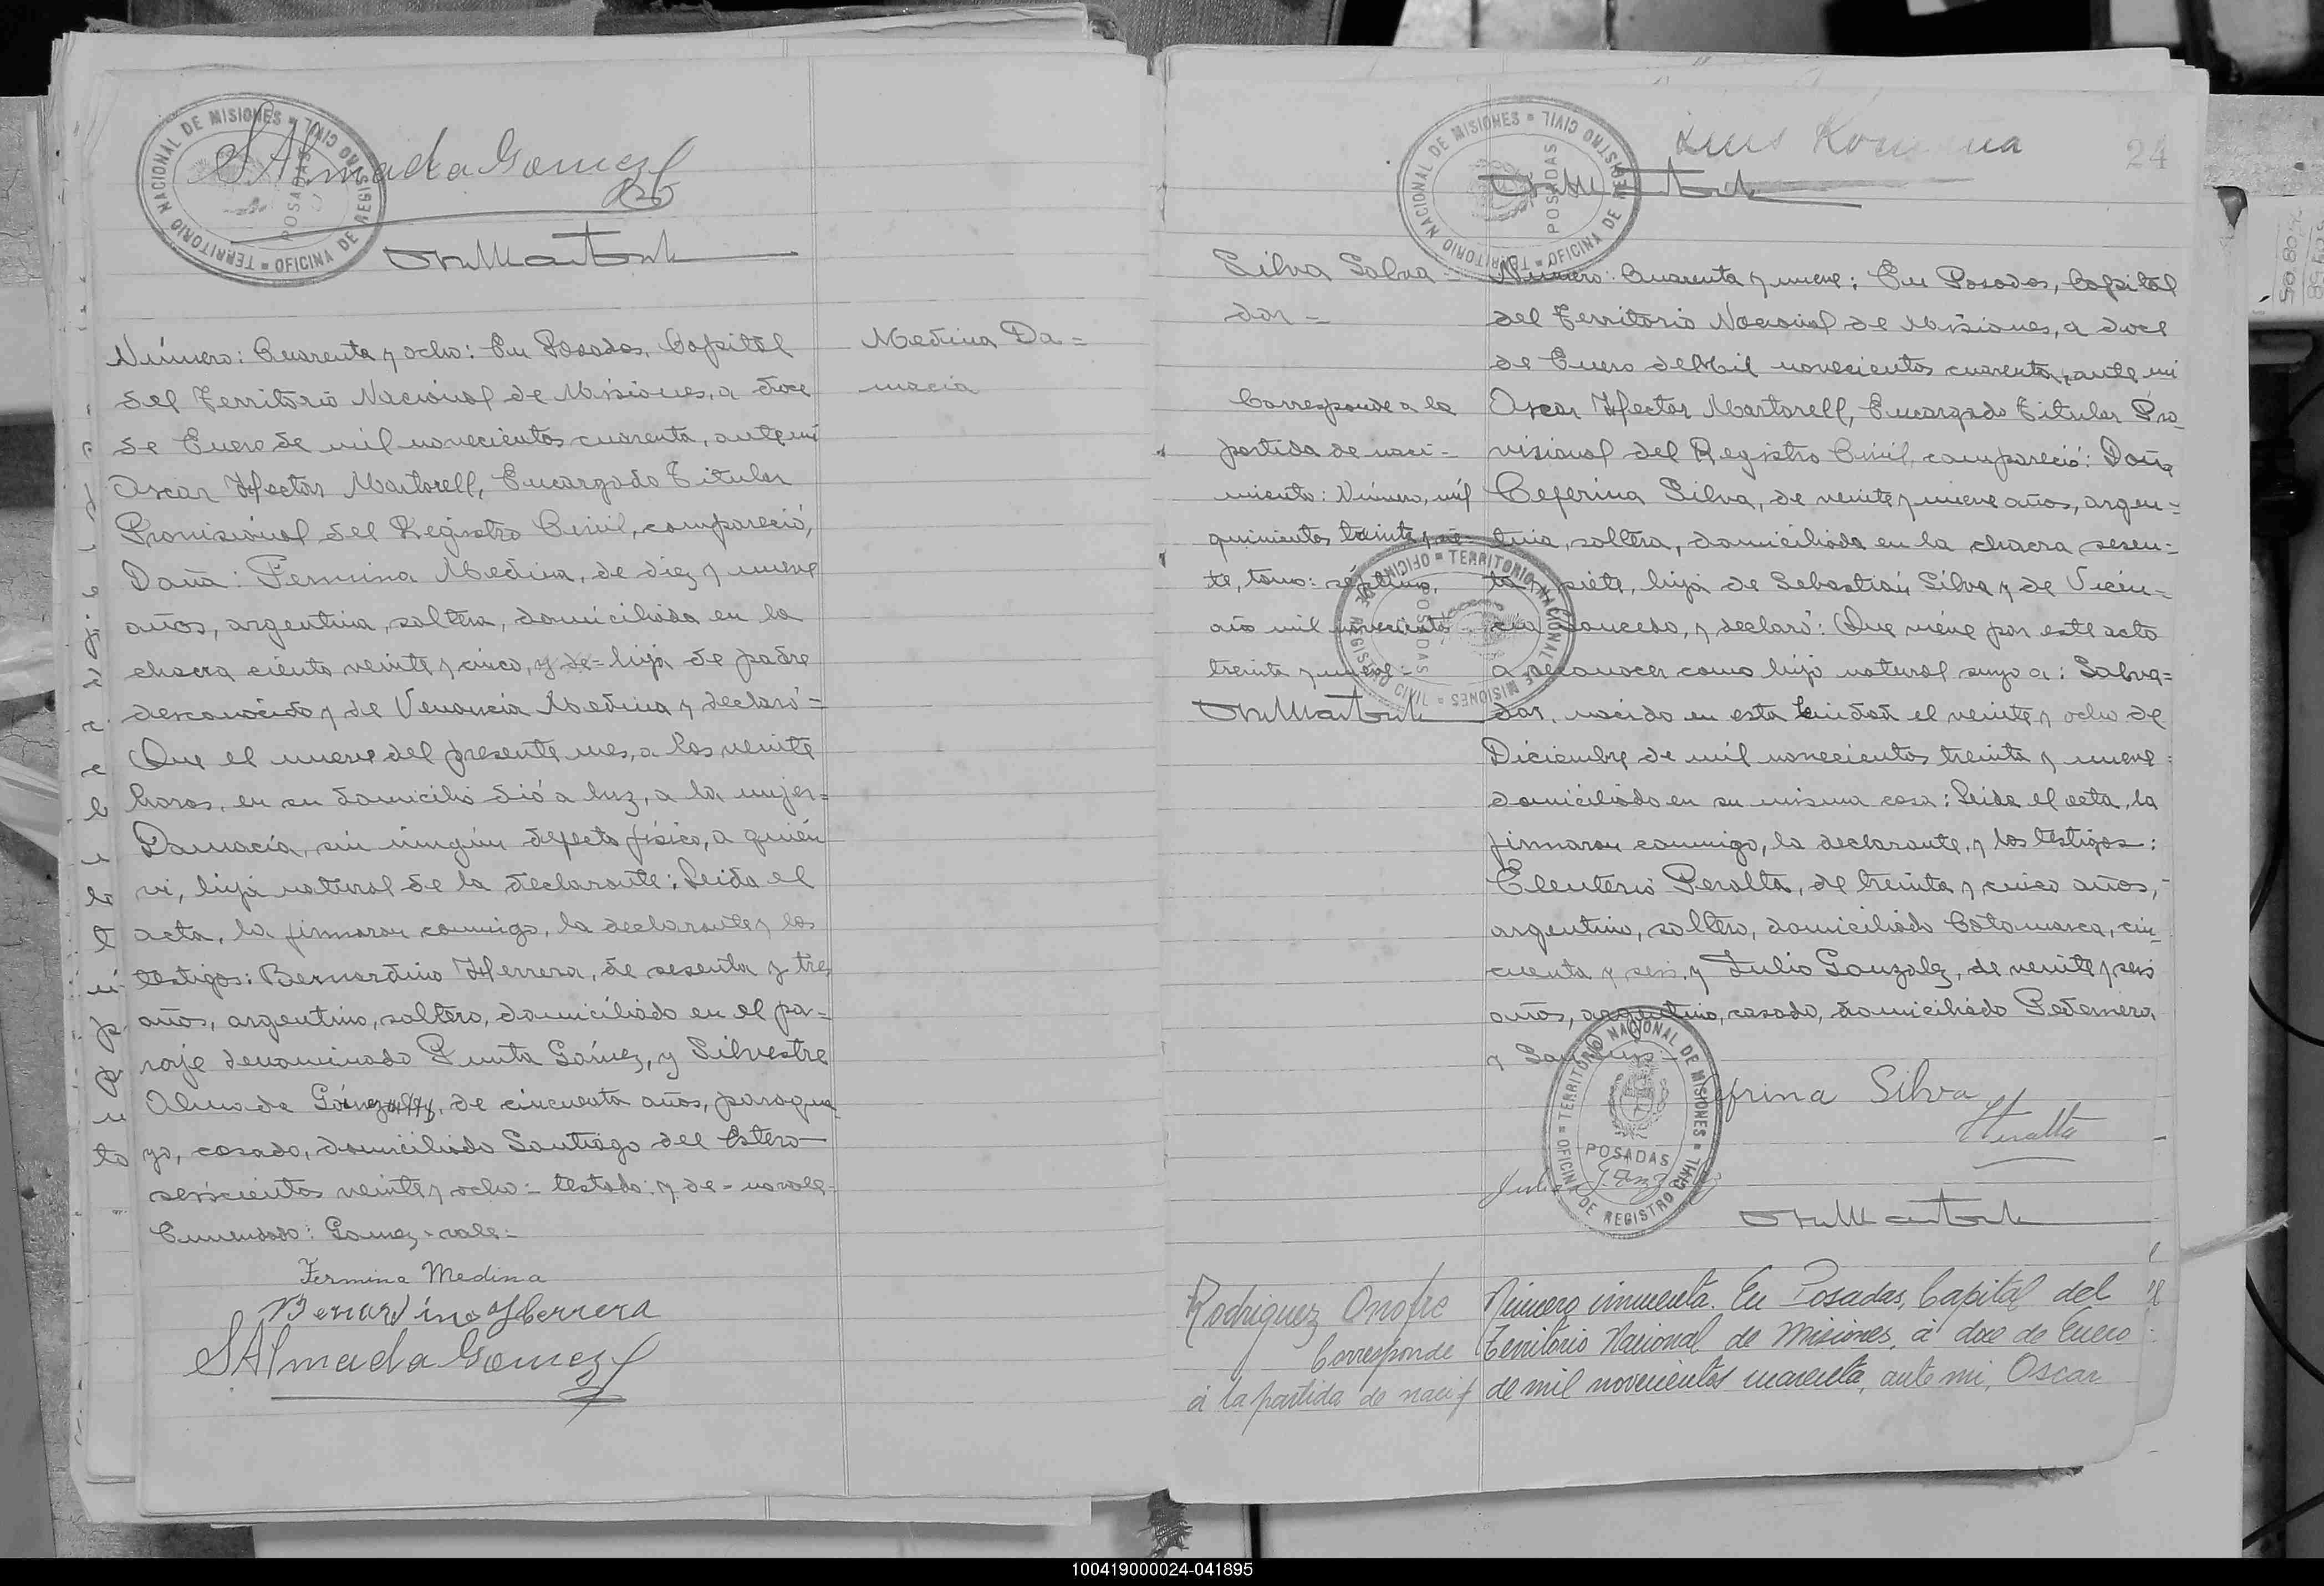 TERRITORIO NACIONAL DE MISIONES = OFICINA DE REGISTRO CIVIL =
POSADAS
S Almada Gomez
Número: Cuarenta y ocho: En Posadas, Capital
del Territorio Nacional de Misiones, a doce
de Enero de mil novecientos cuarenta, ante mi
Oscar Hector Martorell, Encargado Titular
Provisional del Registro Civil, compareció,
Doña: Fermina Medina, de diez y nueve
años, argentina, soltera, domiciliada en la
chacra ciento veinte y cinco, y de= hija de padre
desconocido y de Venancia Medina y declaró=
Que el nueve del presente mes, a las veinte
horas, en su domicilio dió a luz, a la mujer=
Damacia, sin ningún defecto físico, a quién
vi, hija natural de la declarante: Leida el
acta, la firmaron conmigo, la declarante y los
testigos: Bernardino Herrera, de sesenta y tres
años, argentino, soltero, domiciliado en el pa=
raje denominado Punta Gómez, y Silvestre
Almada Gómez, de cincuenta años, paragua
yo, casado, domiciliado Santiago del Estero
seiscientos veinte y ocho= testado: y de= no vale=
Enmendado: Gomez= vale=
Fermina Medina
Bernardino Herrera
S Almada Gomez
Medina Da=
macia
Luis
24
TERRITORIO NACIONAL DE MISIONES = OFICINA DE REGISTRO CIVIL =
POSADAS
Silva Salva=
dor=
Corresponde a la
partida de naci=
miento: Número, mil
quinientos treinta y sie=
te, tomo: séptimo,
año mil novecientos
treinta y nueve=
Número: Cuarenta y nueve: En Posadas, Capital
del Territorio Nacional de Misiones, a doce
de Enero de Mil novecientos cuarenta, ante mi
Oscar Hector Martorell, Encargado Titular Pro
visional del Registro Civil, compareció: Doña
Ceferina Silva, de veinte y nueve años, argen=
tina, soltera, domiciliada en la chacra sesen=
ta y siete, hija de Sebastián Silva y de Vicén=
cia Saucedo, y declaró: Que viene por este acto
a reconocer como hijo natural suyo a: Salva=
dor, nacido en esta Ciudad el veinte y ocho de
Diciembre de mil novecientos treinta y nueve=
domiciliado en su misma casa: Leida el acta, la
firmaron conmigo, la declarante, y los testigos:
Eleuterio Peralta, de treinta y cinco años,
argentino, soltero, domiciliado Catamarca, cin
cuenta y seis, y Julio Gonzalez, de veinte y seis
años, argentino, casado, domiciliado Pedernera
y San Luis=
TERRITORIO NACIONAL DE MISIONES = OFICINA DE REGISTRO CIVIL =
POSADAS
TERRITORIO NACIONAL DE MISIONES = OFICINA DE REGISTRO CIVIL =
POSADAS
Silva
Peralta
Julio
Rodriguez Onofre
Corresponde
á la partida de naci
Número cincuenta. En Posadas, Capital del
Territorio Nacional de Misiones, á doce de Enero
de mil novecientos cuarenta, ante mi, Oscar
100419000024-041895